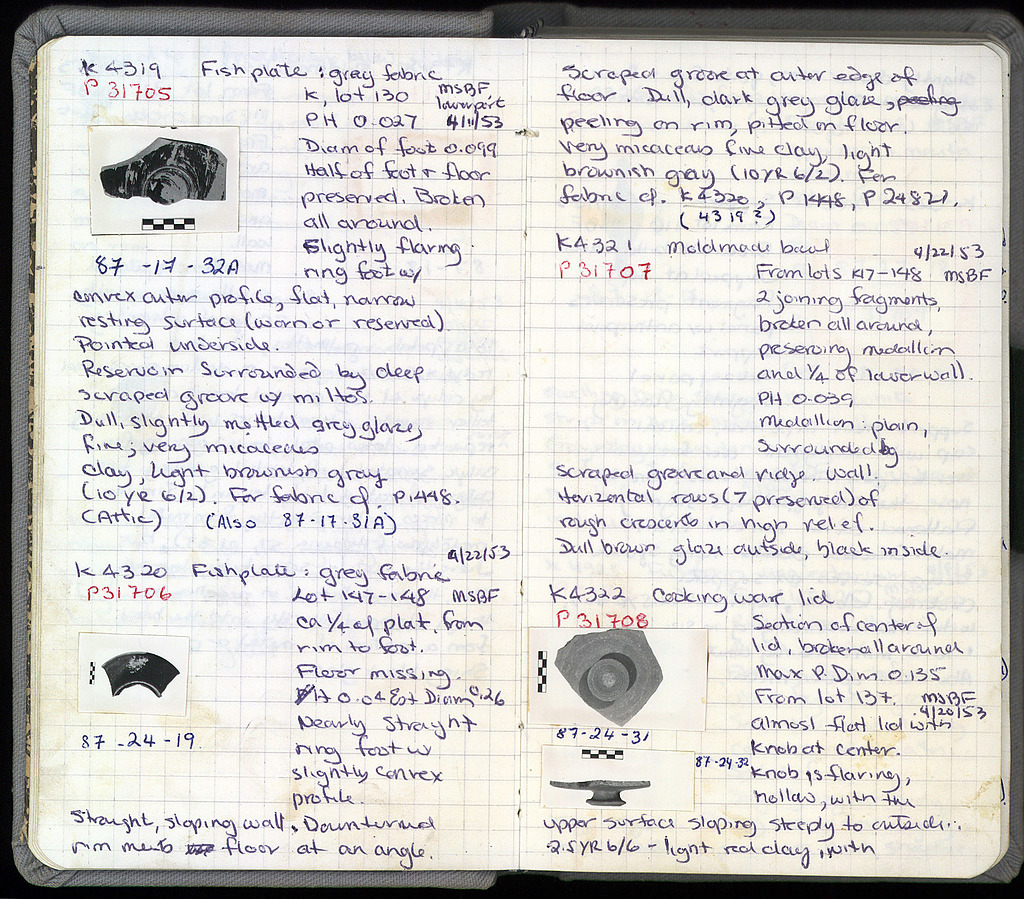 K 4319 Fishplate : grey fabric
P 31705 K, lot 130 MSBF
lower part
PH 0.027 4/11/53
Diam of foot 0.099
Half of foot + floor
preserved. Broken
all around.
Slightly flaring
87 -17 - 32A ring foot w/
convex outer profile, flat, narrow
resting surface (worn or reserved).
Pointed underside.
Reservoir surrounded by deep
scraped groove w/ miltos.
Dull, slightly mottled grey glaze,
fine; very micaceous
clay, light brownish gray
(10 YR 6/2). For fabric cf. P 1448.
(Attic) (Also 87-17-31A)
4/22/53
K 4320 Fishplate : grey fabric
P31706 Lot K47-148 MSBF
ca 1/4 of plat, from
rim to foot.
Floor missing.
PH 0.04 Est Diam 0.26
Nearly straight
87 -24 -19. ring foot w
slightly convex
profile.
Straight, sloping wall. Downturned
rim meets floor at an angle.
Scraped groove at outer edge of
floor. Dull, dark grey glaze, peeling
peeling on rim, pitted on floor.
Very micaceous fine clay, light
brownish gray (10 YR 6/2). For
fabric cf. K4320, P 1448, P 24821.
(4319?)
K4321 Moldmade bowl 4/22/53
P 31707 From lots K47-148 MSBF
2 joining fragments,
broken all around,
preserving medallion
and 1/4 of lower wall.
PH 0.039
Medallion: plain,
surrounded by
scraped groove and ridge. Wall:
Horizontal rows (7 preserved) of
rough crescents in high relief.
Dull brown glaze outside, black inside.
K4322 Cooking ware lid
P 31708 Section of center of
lid, broken all around
Max P. Dim. 0.135
From lot 137. MSBF
4/20/53
Almost flat lid with
87-24-31 knob at center.
87-24-32 Knob is flaring,
hollow, with the
upper surface sloping steeply to outside.
2.5YR 6/6 - light red clay, with